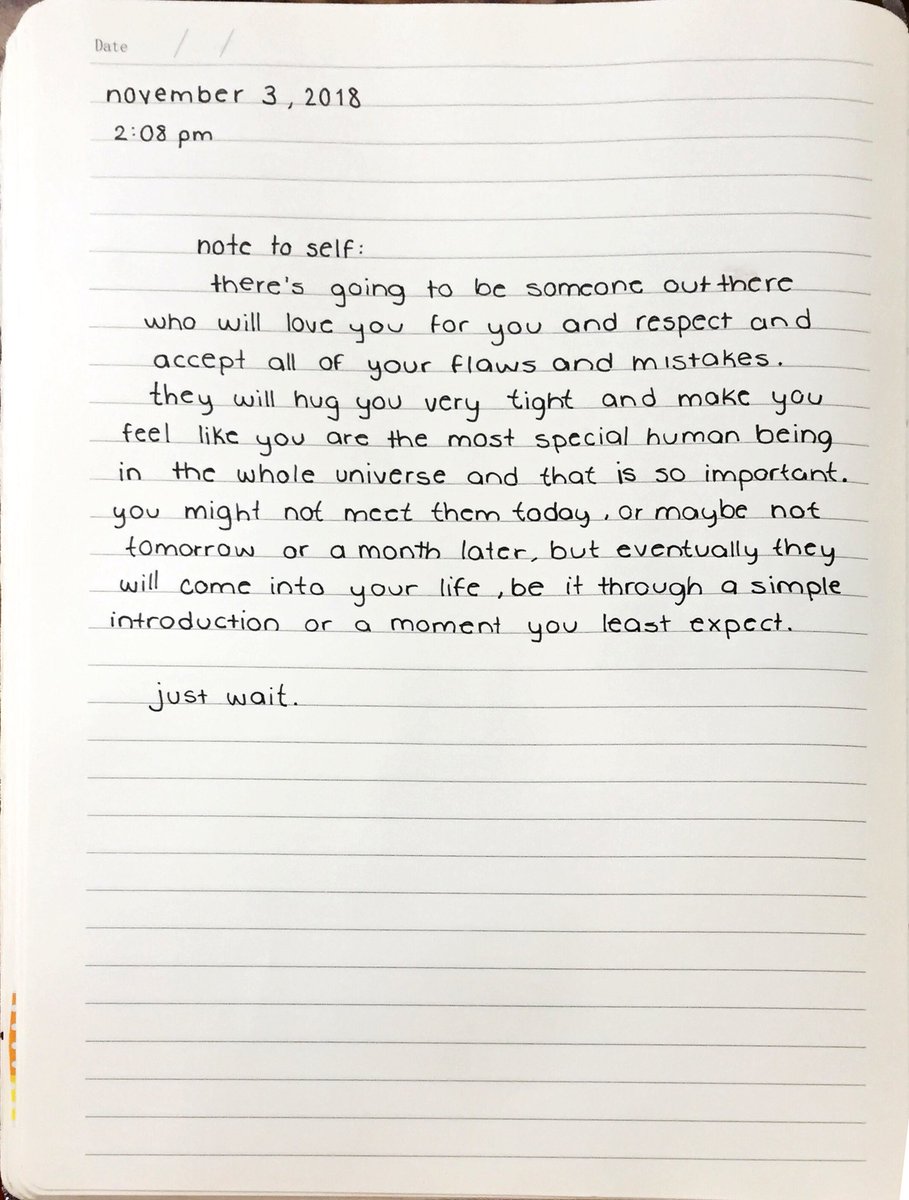 Date / /
november 3, 2018
2:08 pm
note to self:
there's going to be someone out there
who will love you for you and respect and
accept all of your flaws and mistakes.
they will hug you very tight and make you
feel like you are the most special human being
in the whole universe and that is so important.
you might not meet them today, or maybe not
tomorrow or a month later, but eventually they
will come into your life, be it through a simple
introduction or a moment you least expect.
just wait.